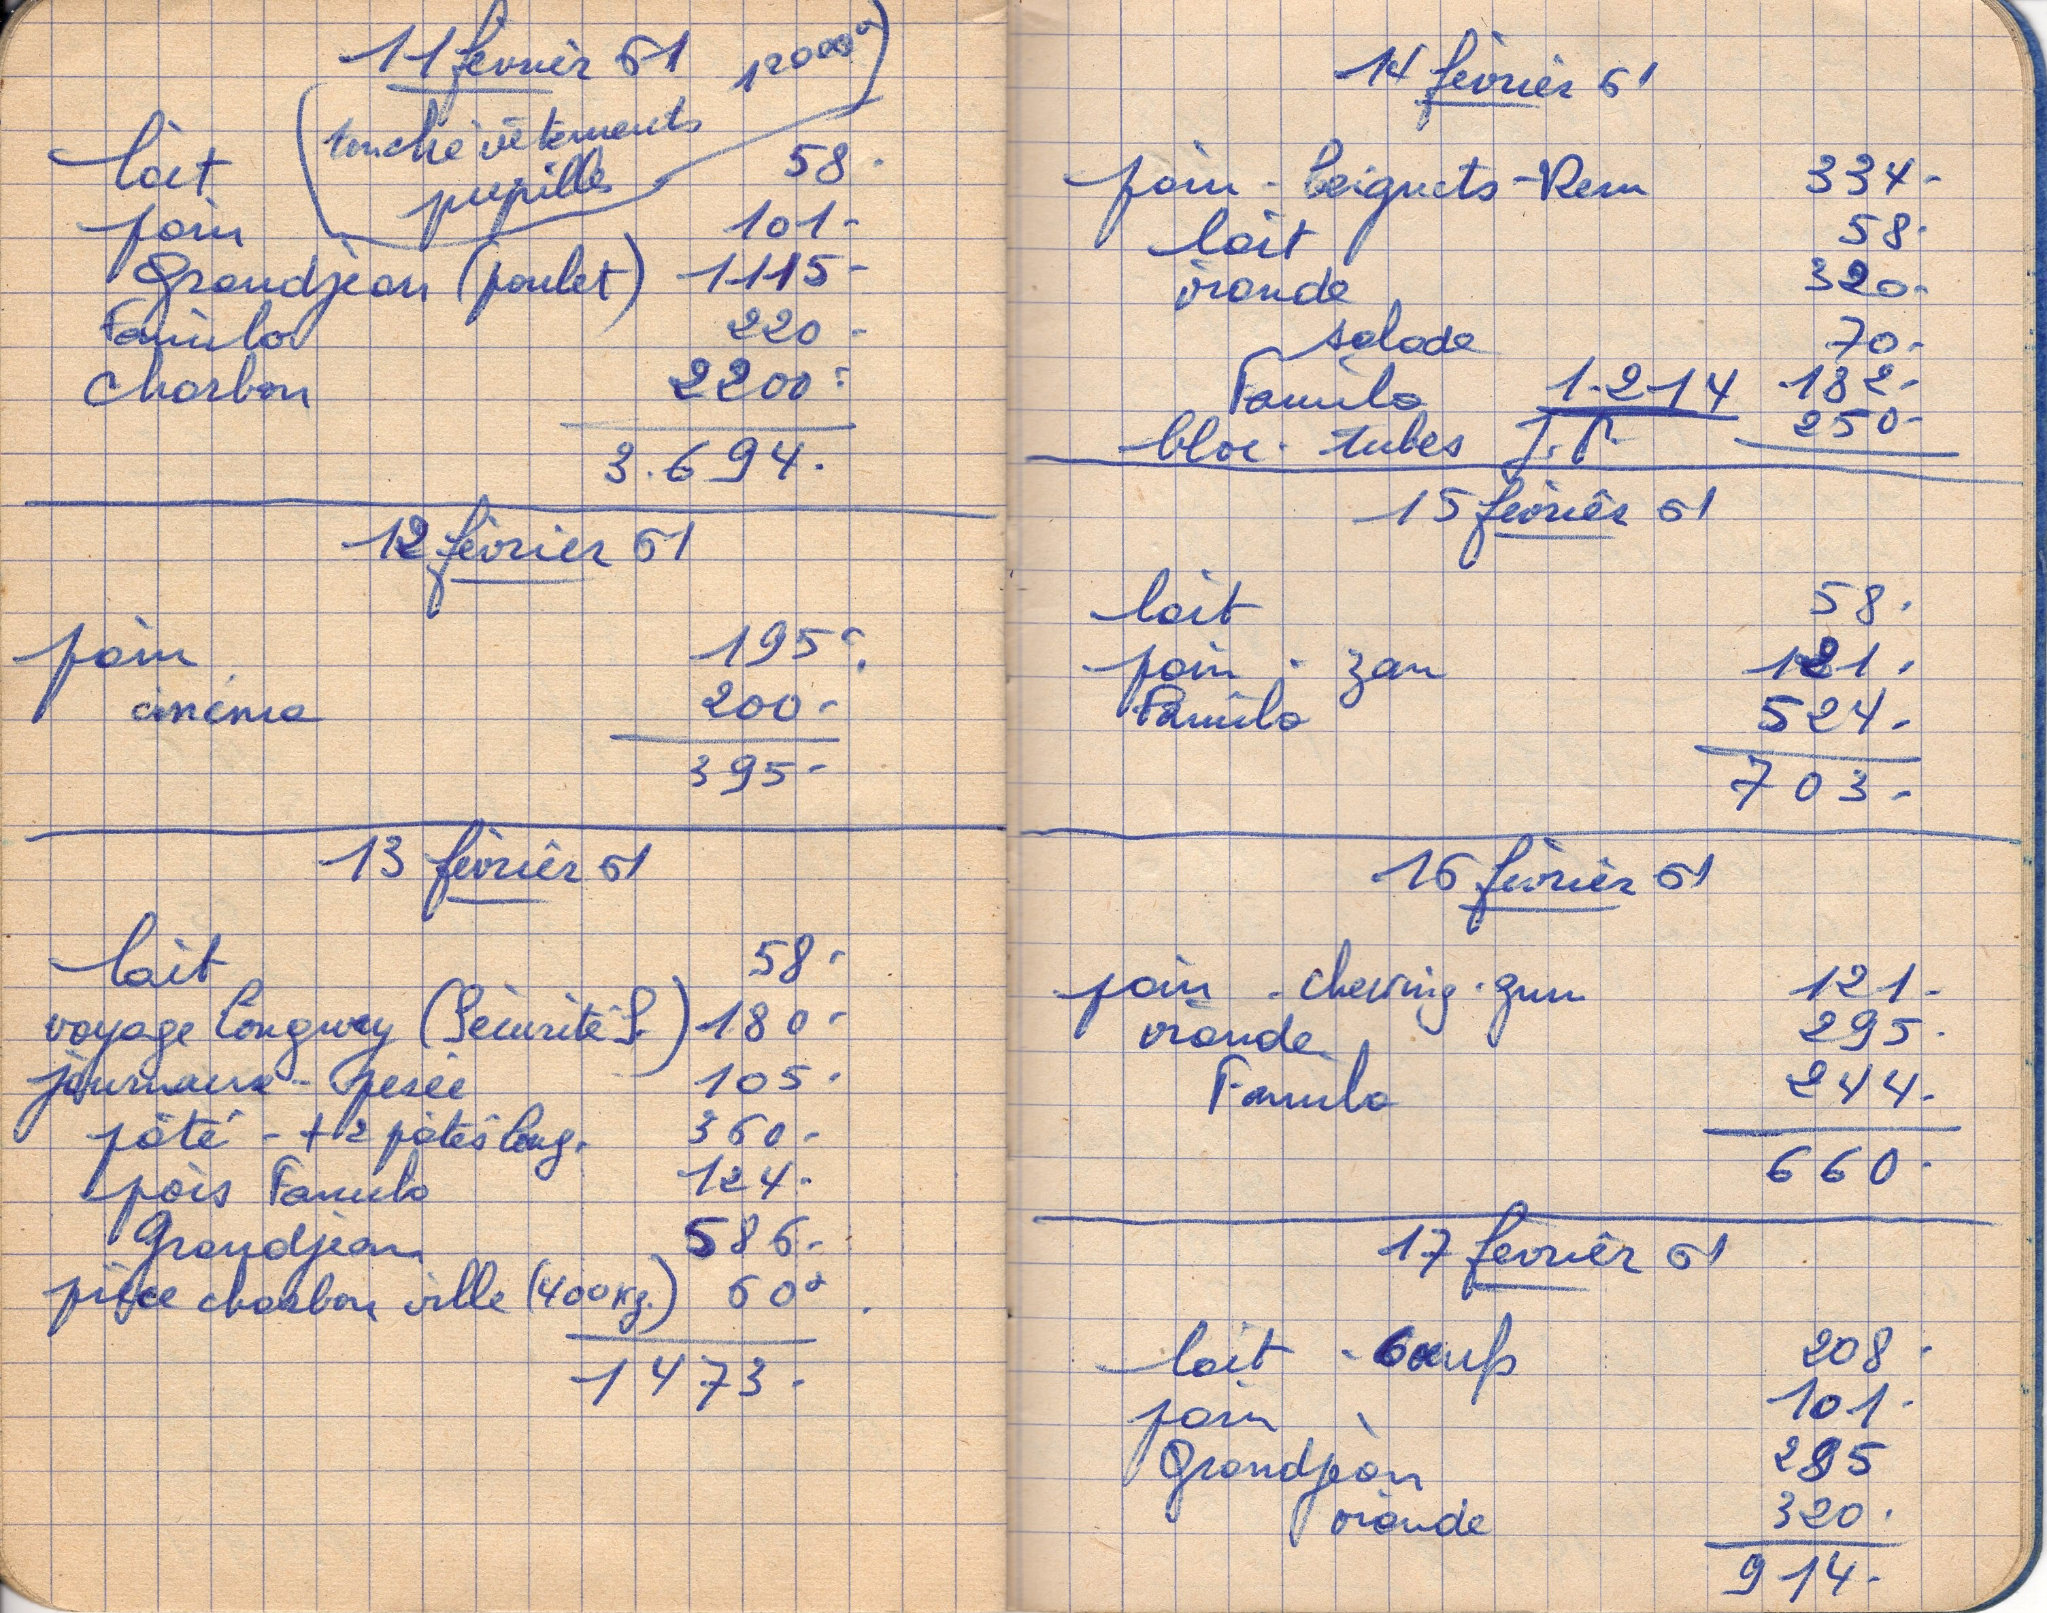 11 février 61 12000
(touché vêtements
pupilles)
lait 58.
pain 101-
Grandjean (poulet) 1115-
Familo 220-
Charbon 2200-
3.694.
12 février 61
pain 195-
cinéma 200-
395-
13 février 61
lait 58-
voyage Longwy (Sécurité S.) 180-
journaux - pesée 105.
pâté - + 2 pâtés long. 360-
pois Famulo 124.
Grandjean 586.-
charbon ville (400 kg.) 60
1473-
14 février 61
pain - beignets - Rem 334-
lait 58.
viande 320-
salade 70-
Famulo 1.214 182-
bloc - tubes J.P. 250-
15 février 61
lait 58.
pain - zan 121.
Famulo 524.
703-
16 février 61
pain - chewing-gum 121-
viande 295-
Famulo 244.
660.
17 février 61
lait - 6 oeufs 208-
pain 101.
Grandjean 285
viande 320.
914.